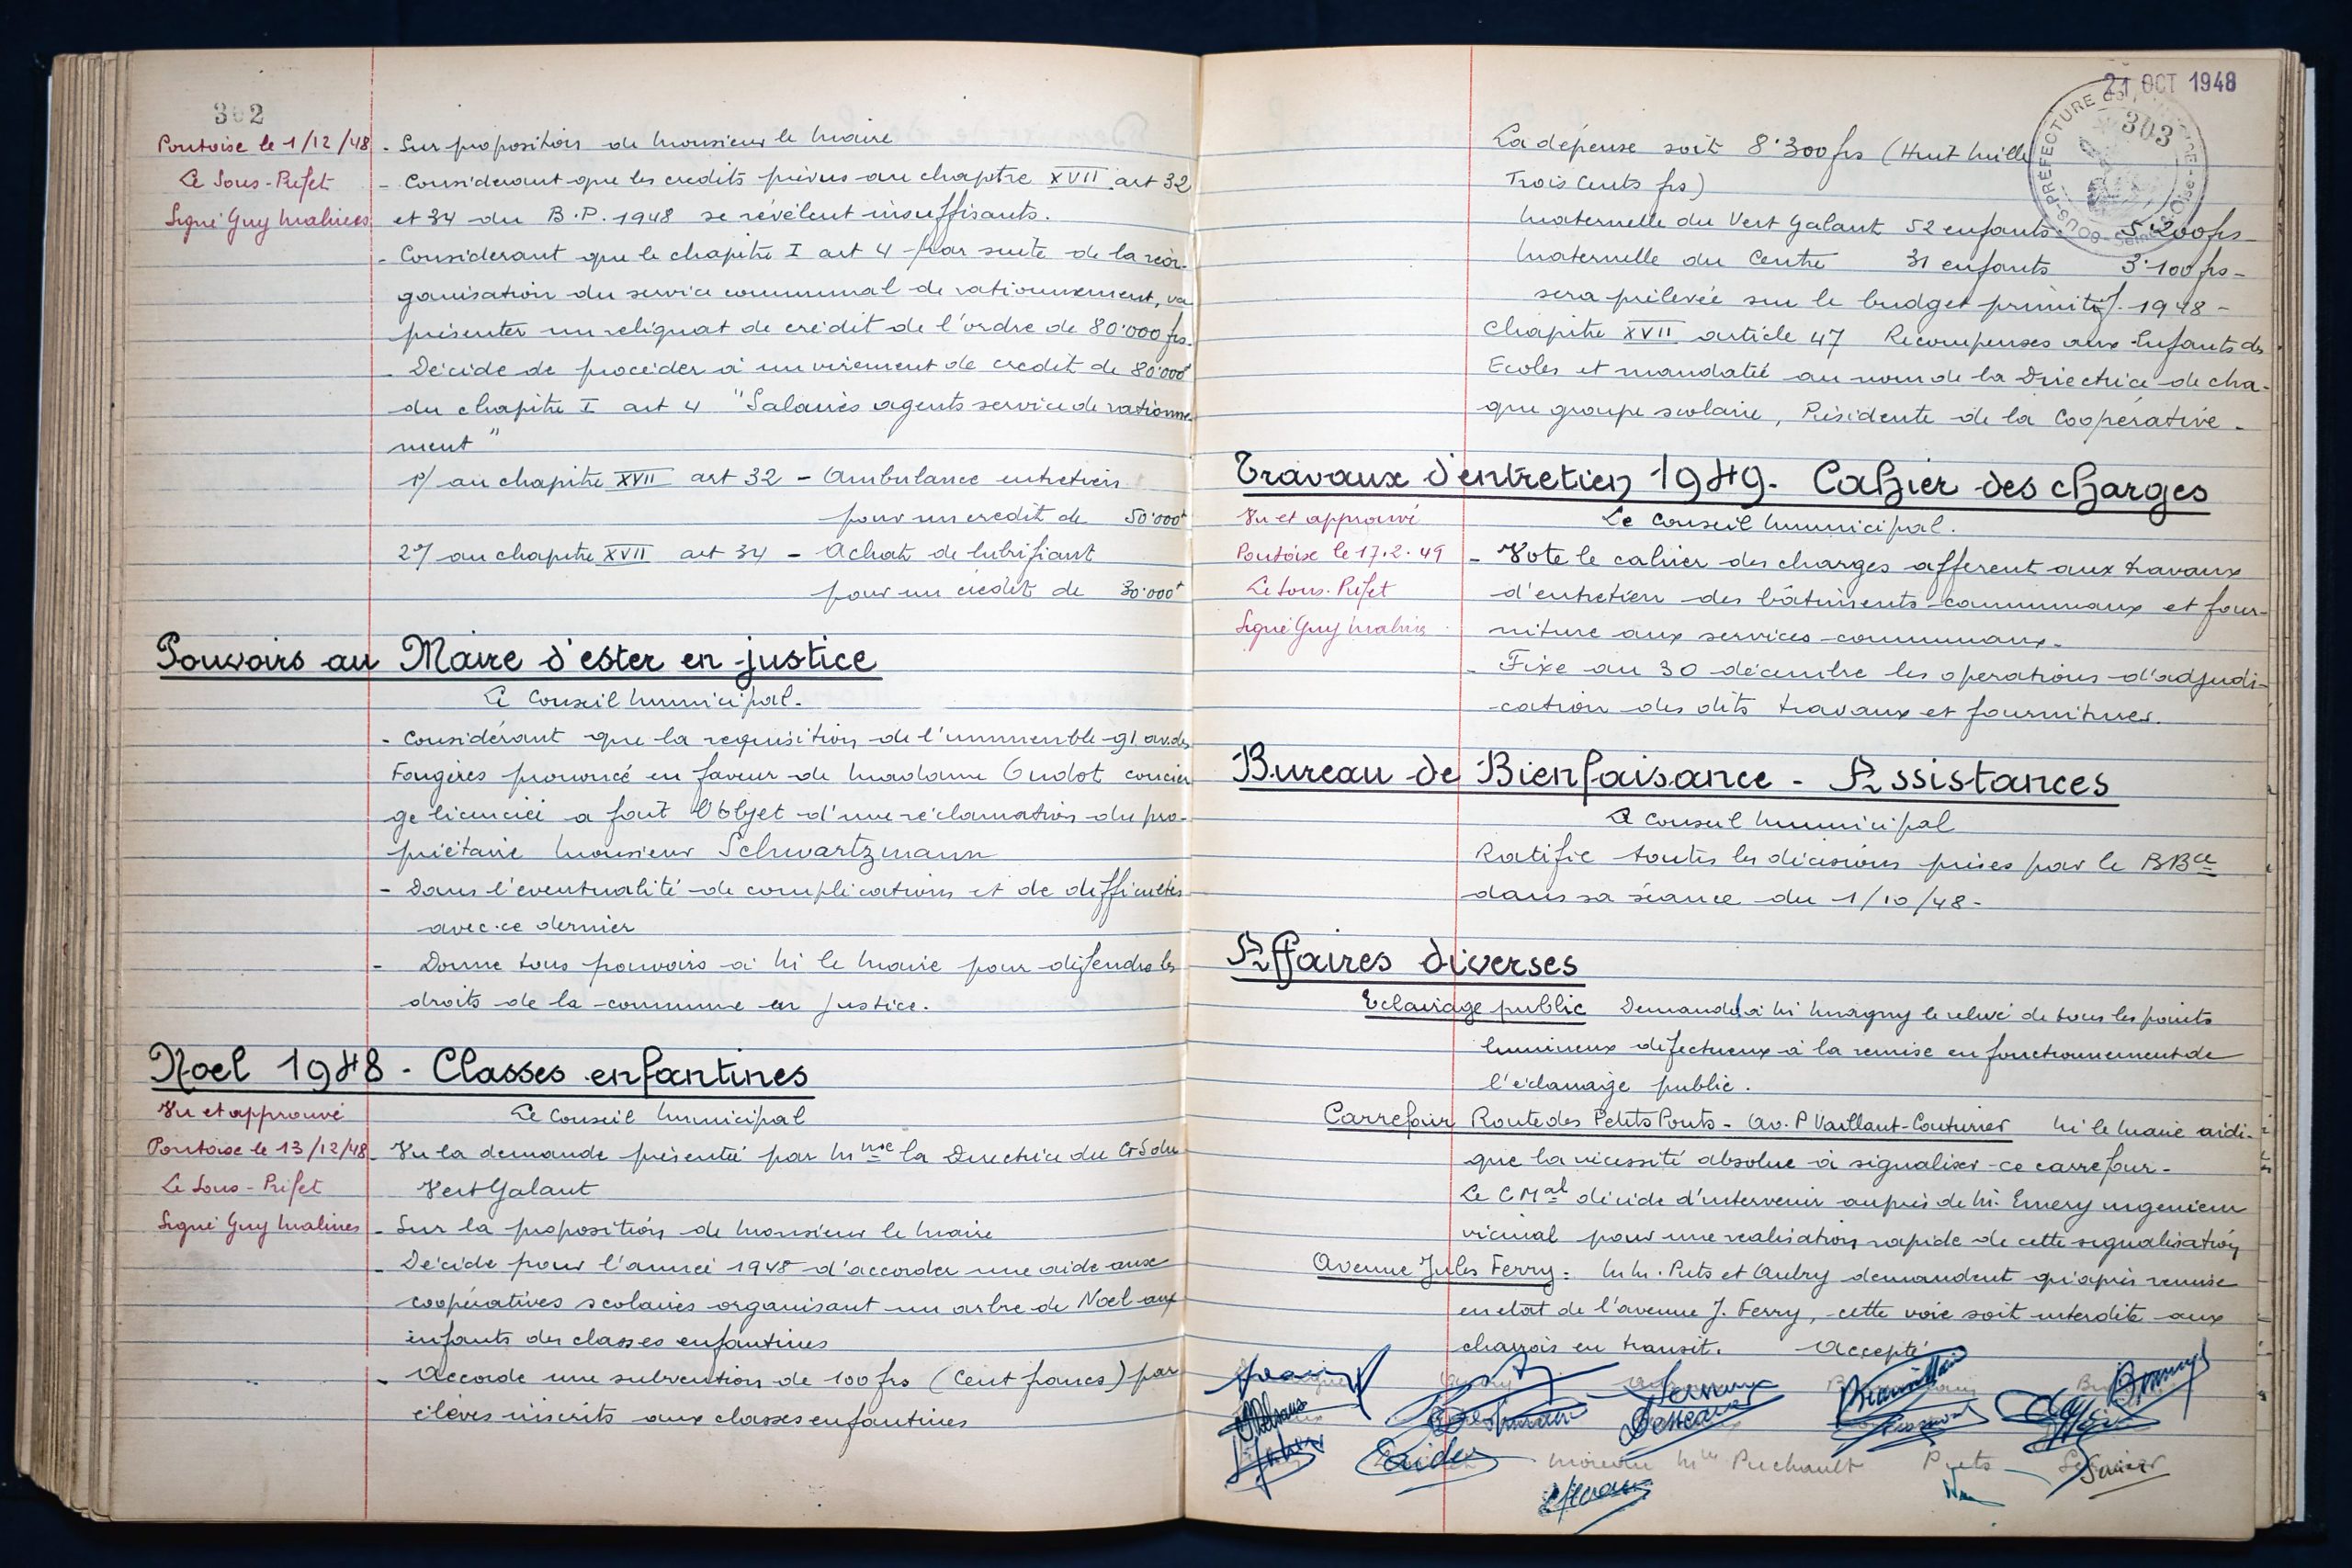 302
Pontoise le 1/12/48
Le Sous-Préfet
Signé Guy Malines
- Sur proposition de Monsieur le Maire
- Considerant que les credits prévus au chapitre XVII art 32
et 34 du B.P. 1948 se révèlent insuffisants.
- Considerant que le chapitre I art 4 par suite de la réor-
ganisation du service communal de rationnement, va
présenter un reliquat de crédit de l'ordre de 80'000 frs.
- Décide de procéder à un virement de credit de 80'000f
du chapitre I art 4 "Salaires agents service de rationne
ment"
1°/ au chapitre XVII art 32 - Ambulance entretien
pour un credit de 50'000f
2°/ au chapitre XVII art 34 - Achat de lubrifiant
pour un crédit de 30'000f
Pouvoirs au Maire d'ester en justice
Le Conseil Municipal.
- Considérant que la requisition de l'immeuble 91 av. des
Fougères prononcé en faveur de Madame Gudot concier
ge licenciée a fait l'Objet d'une réclamation du pro-
priétaire Monsieur Schwartzmann
- Dans l'éventualité de complications et de difficultés
avec ce dernier
- Donne tous pouvoirs à M le Maire pour défendre les
droits de la commune en justice.
Noel 1948 - Classes enfantines
Vu et approuvé
Pontoise le 13/12/48
Le Sous-Préfet
Signé Guy Malines
Le Conseil Municipal
- Vu la demande présentée par Mme la Directrice du GS du
Vert Galant
- Sur la proposition de Monsieur le Maire
- Décide pour l'année 1948 d'accorder une aide aux
coopératives scolaires organisant un arbre de Noel aux
enfants des classes enfantines
- Accorde une subvention de 100 frs (Cent francs) par
élèves inscrits aux classes enfantines
21 OCT 1948
303
SOUS-PRÉFECTURE DE PONTOISE
Seine-et-Oise
La dépense soit 8'300 frs (Huit Mille
Trois Cents frs)
Maternelle du Vert Galant 52 enfants 5'200 frs
Maternelle du Centre 31 enfants 3'100 frs -
sera prélevée sur le budget primitif 1948 -
Chapitre XVII article 47 Récompenses aux Enfants des
Ecoles et mandatée au nom de la Directrice de cha-
que groupe scolaire, Présidente de la Coopérative.
Travaux d'entretien 1949. Cahier des charges
Vu et approuvé
Pontoise le 17.2.49
Le Sous-Préfet
Signé Guy Malines
Le Conseil Municipal.
- Vote le cahier des charges afférent aux travaux
d'entretien des bâtiments communaux et four-
niture aux services communaux.
- Fixe au 30 décembre les operations d'adjudi-
cation des dits travaux et fournitures.
Bureau de Bienfaisance - Assistances
Le Conseil Municipal
Ratifie toutes les décisions prises par le BBce
dans sa séance du 1/10/48 -
Affaires diverses
Eclairage public Demande à M Magny le relevé de tous les points
lumineux défectueux à la remise en fonctionnement de
l'éclairage public.
Carrefour Route des Petits Ponts - Av. P Vaillant-Couturier M le Maire indi-
que la nécessité absolue à signaliser ce carrefour -
Le C Mal décide d'intervenir auprès de M. Emery ingenieur
vicinal pour une realisation rapide de cette signalisation
Avenue Jules Ferry : M M. Puts et Aubry demandent qu'après remise
en etat de l'avenue J. Ferry, cette voie soit interdite aux
charrois en transit. Accepté
Moreau Mlle Puchault Puts